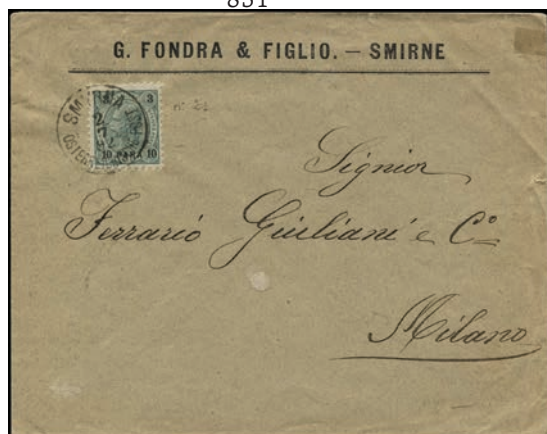 851
G. FONDRA & FIGLIO. — SMIRNE
3 3
10 PARA 10
SMIRNA
Signior
Ferrario Giuliani e Cº
Milano